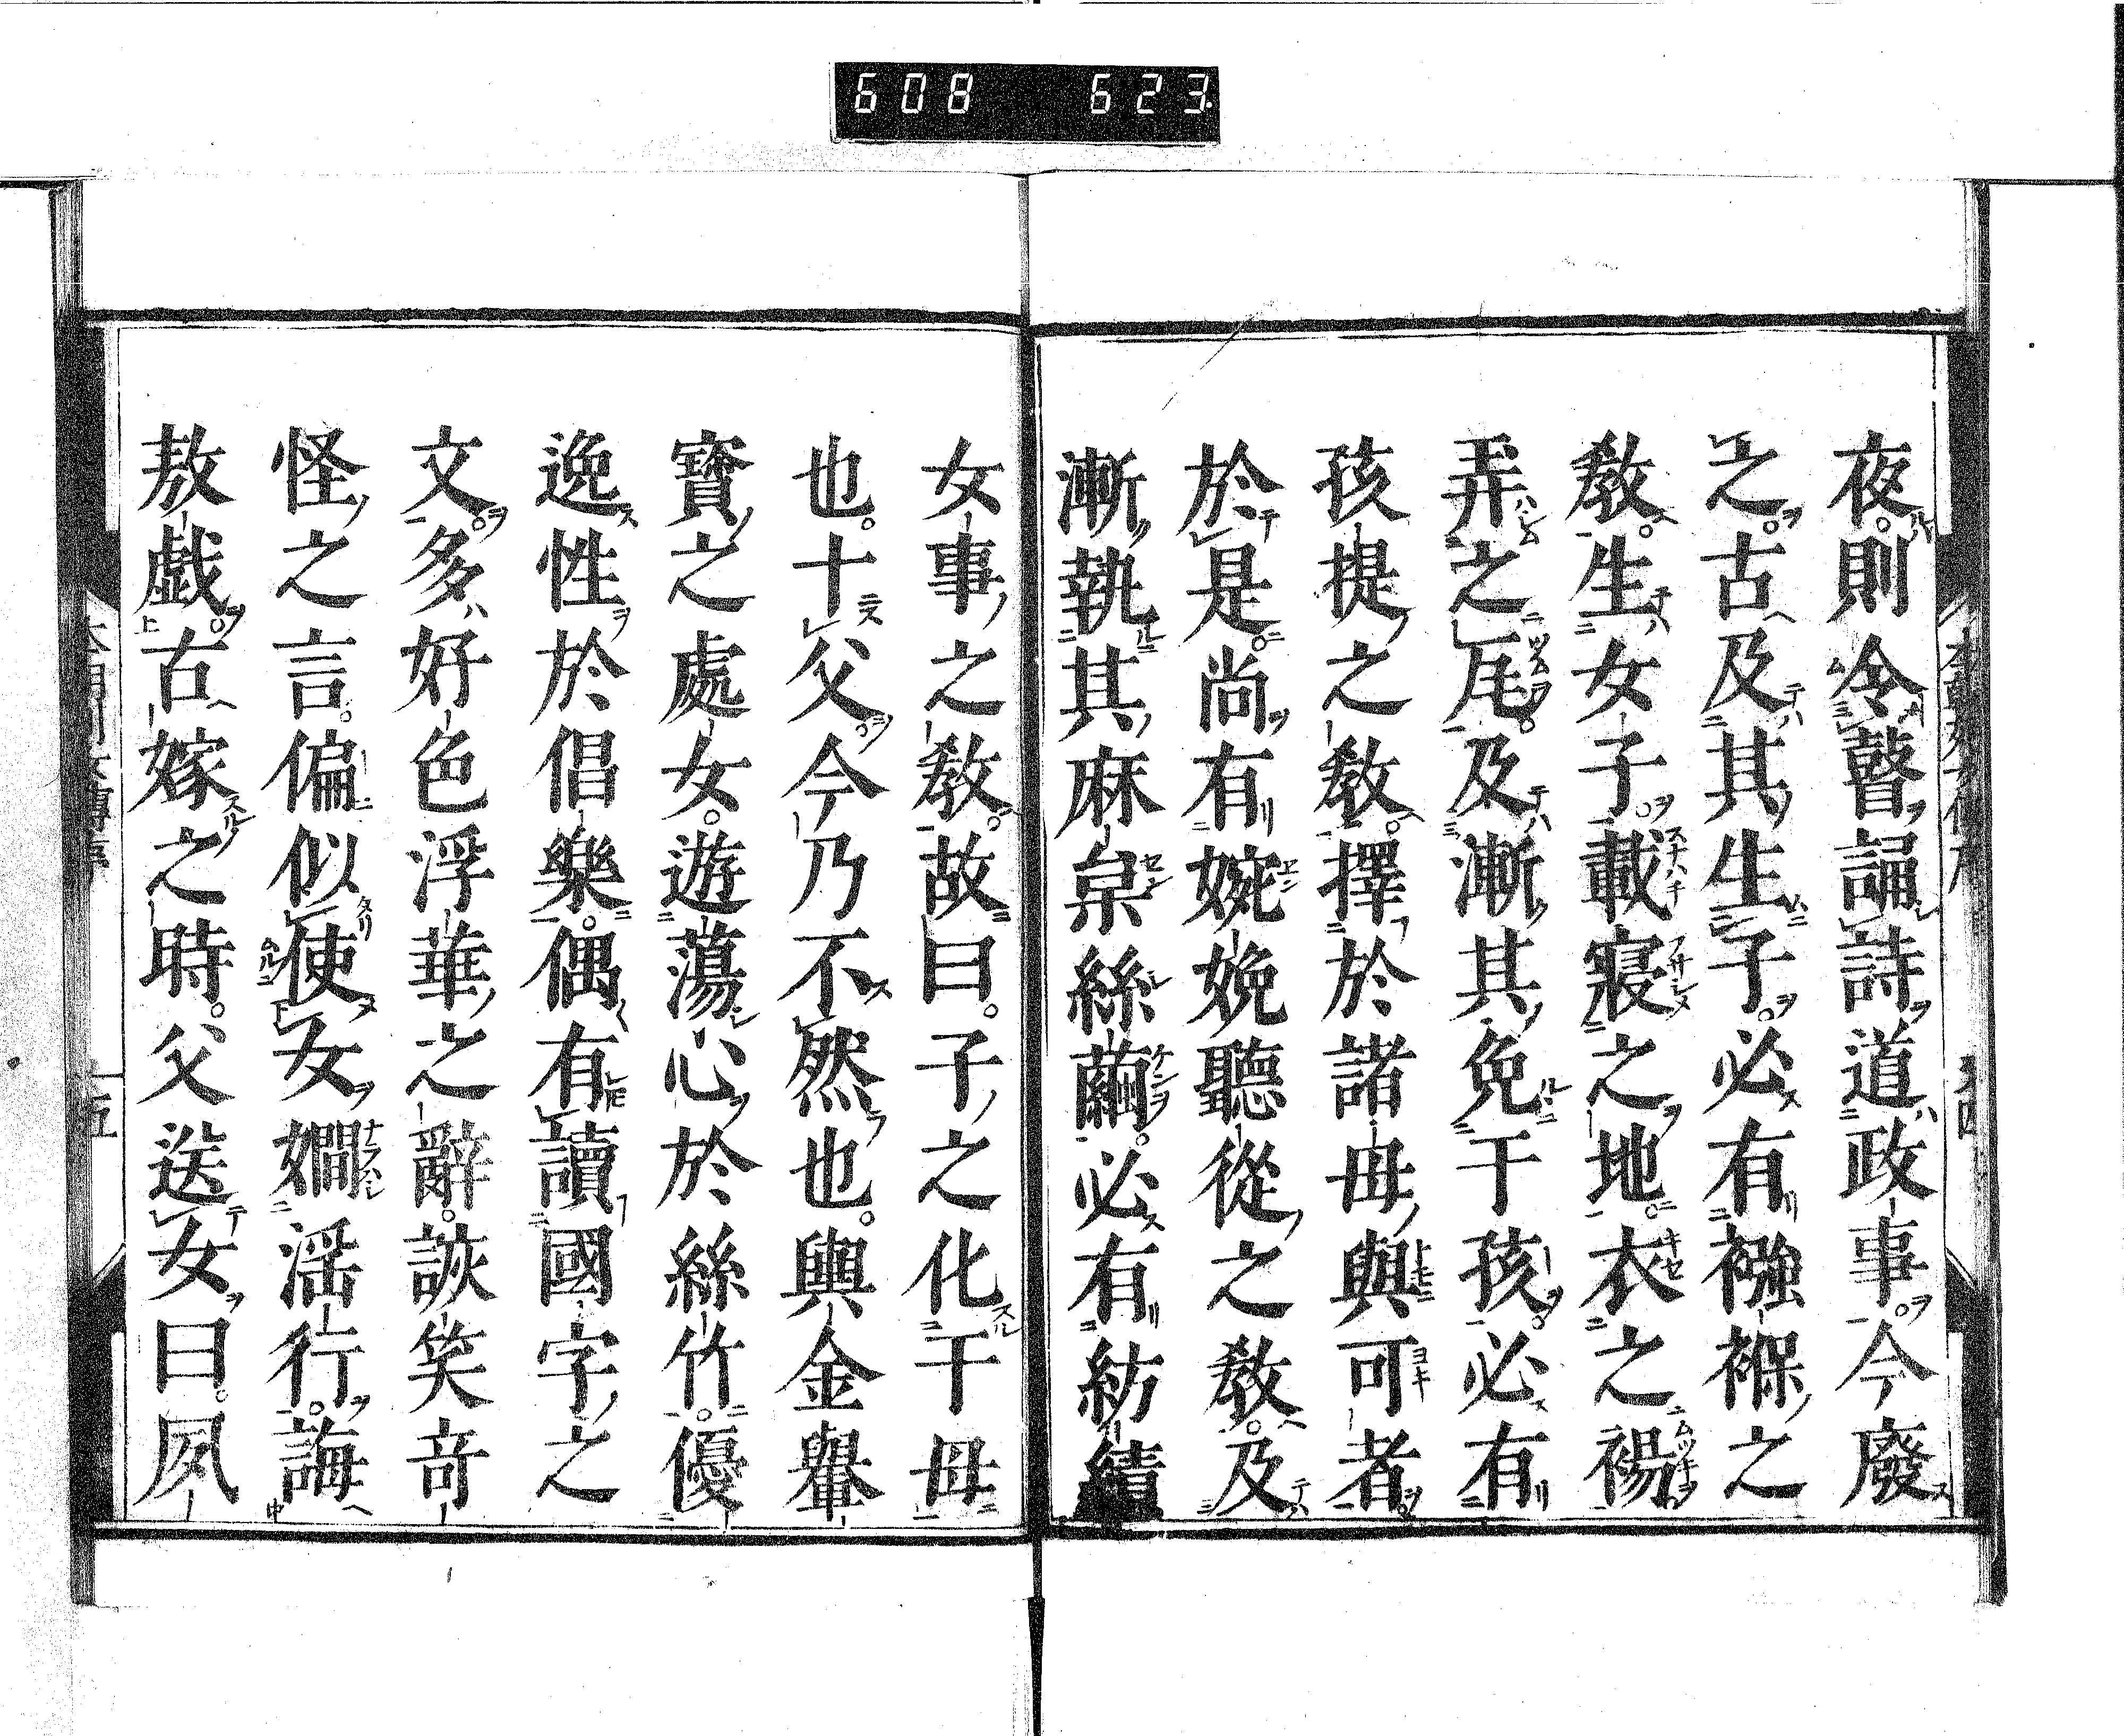 608 623
夜則冷瞽誦詩道政事今廢
之古及其生子必有襁褓之
教生女子載寢之地衣之裼
弄之瓦及漸其免于孩必有
孩提之教擇於諸母與可者
於是尚有婉娩聽從之教及
漸執其麻枲絲繭必有紡績
女事之教故曰子之化于母
也十父今乃不然也與金轝
寶之處女遊蕩心於絲竹優
逸性於倡樂偶有讀國字之
文多好色浮華之辭詼笑奇
怪之言偏似使女嫺淫行誨
敖戲古嫁之時父送女曰夙
五